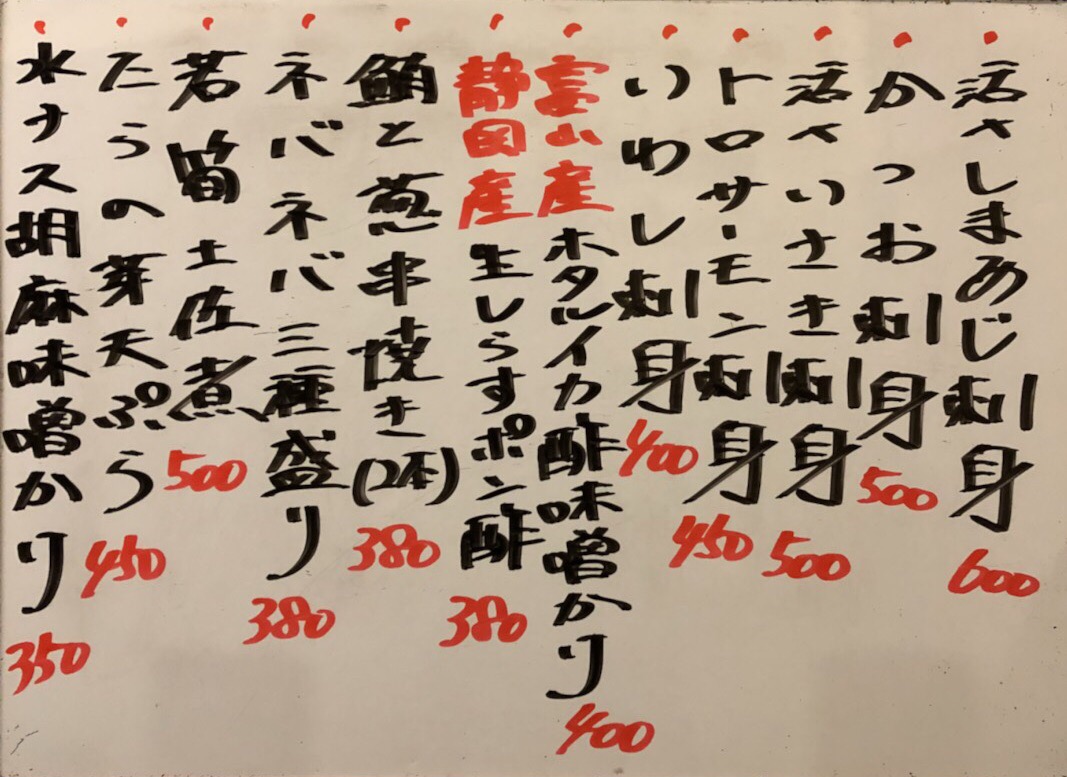 活〆しまあじ刺身 600
かつお刺身 500
活〆いさき刺身 500
トロサーモン刺身 450
いわし刺身 400
富山産ホタルイカ酢味噌かり 400
静岡産生しらすポン酢 380
鮪と葱串焼き(2本) 380
ネバネバ三種盛り 380
若筍土佐煮 500
たらの芽天ぷら 450
水ナス胡麻味噌かり 350